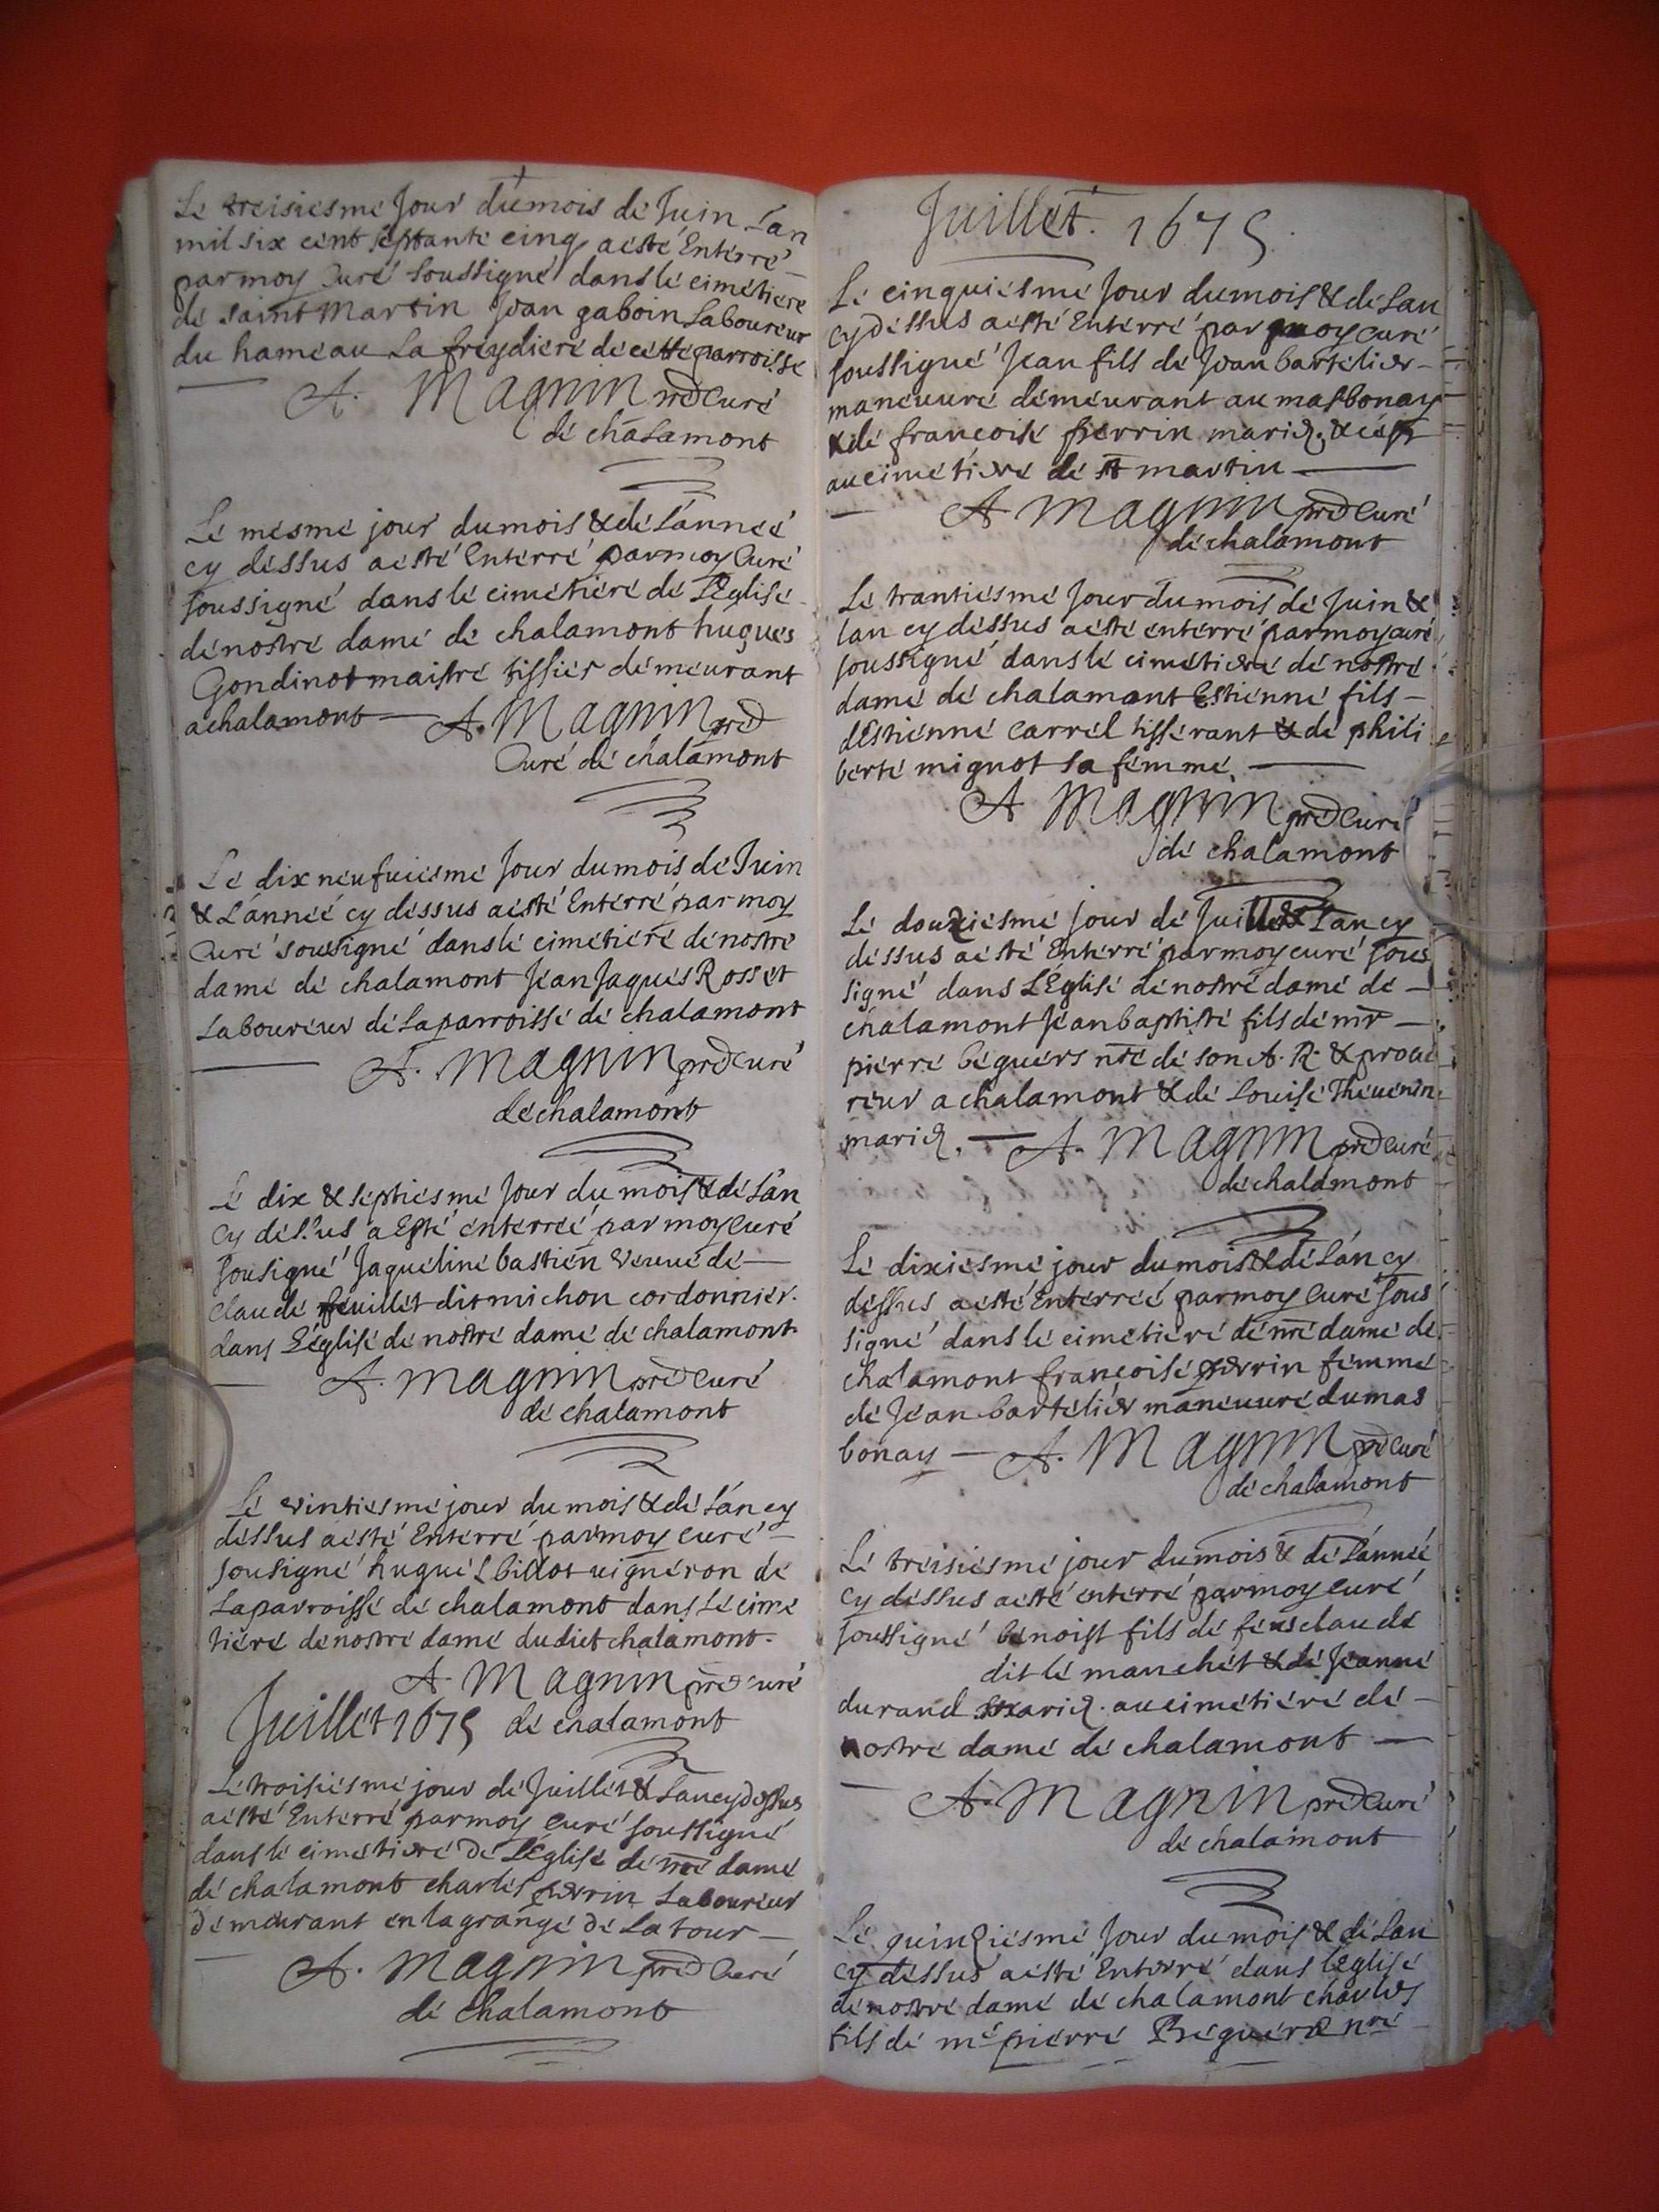 Le treisiesme Jour du mois de Juin Lan
mil six cent septante cinq a esté Enterré
par moy Curé soussigné dans le cimetiere
de saint Martin Jean gaboin Laboureur
du hameau La freydiere de cette parroisse
A. Magnin prê Curé
de chalamont
Le mesme jour du mois & de L'année
cy dessus a esté Enterré par moy Curé
soussigné dans le cimetiere de L'Eglise
de nostre dame de chalamont hugues
Gondinot maistre tissier demeurant
a chalamont A. Magnin prê
Curé de chalamont
Le dix neufuiesme Jour du mois de Juin
& L'année cy dessus a esté Enterré par moy
Curé sousigné dans le cimetiere de nostre
dame de chalamont Jean Jaques Rosset
Laboureur de La parroisse de chalamont
A. Magnin prê Curé
de chalamont
Le dix & septiesme Jour du mois & de L'an
cy dessus a Esté enterreé par moy Curé
sousigné Jaqueline bastien veuue de
claude feuillet dit michon cordonnier.
dans L'églisé de nostre dame de chalamont
A. Magnin prê Curé
de chalamont
Le vintiesme jour du mois & de L'an cy
dessus a esté Enterré par moy curé
sousigné hugues billot uigneron de
La parroisse de chalamont dans Le cime
tiere de nostre dame dudict chalamont.
A. Magnin prê curé
Juillet 1675 de chalamont
Le troisiesme jour de Juillet & L'an cy dessus
a esté Enterré par moy curé soussigné
dans le cimetiere de L'Eglise de nr̃e dame
de chalamont charles perrin Laboureur
demeurant en la grange de La tour
A. Magnin prê Curé
de chalamont
Juillet. 1675.
Le cinquiesme Jour du mois & de L'an
cy dessus a esté Enterré par moy curé
soussigné Jean fils de Jean bartelier
maneuure demeurant au mas bonay
& de françoise perrin mariez, & cest
au cimetiere de st martin
A Magnin prê Curé
de chalamont
Le trantiesme Jour du mois de Juin &
lan cy dessus a esté enterré par moy curé
soussigné dans le cimetiere de nostre
dame de chalamont Estienne fils
d'Estienne Carrel tisserant & de phili
berte mignot sa femme.
A Magnin prê Curé
de chalamont
Le douziesme Jour de Juillet L'an cy
dessus a esté Enterré par moy curé sous
signé dans L'Eglise de nostre dame de
chalamont Jean baptiste fils de mr
pierre beguers nr̃e de son A. R. & procu
reur a chalamont & de Louise Theuenin
mariez. A. Magnin prê Curé
de chalamont
Le dixiesme jour du mois & de L'an cy
dessus a esté Enterreé par moy Curé sous
signé dans le cimetiere de nr̃e dame de
chalamont françoise perrin femme
de Jean bartelier maneuure du mas
bonay A. Magnin prê Curé
de chalamont
Le treisiesme jour du mois & de L'année
cy dessus a esté enterré par moy curé
soussigné benoist fils de feu claude
dit le manchet & de Jeanne
durand mariez. au cimetiere de
nostre dame de chalamont
A. Magnin prê Curé
de chalamont
Le quinziesme Jour du mois & de L'an
cy dessus a esté Enterré dans l'eglise
de nostre dame de chalamont charles
fils de me pierre Beguers nre